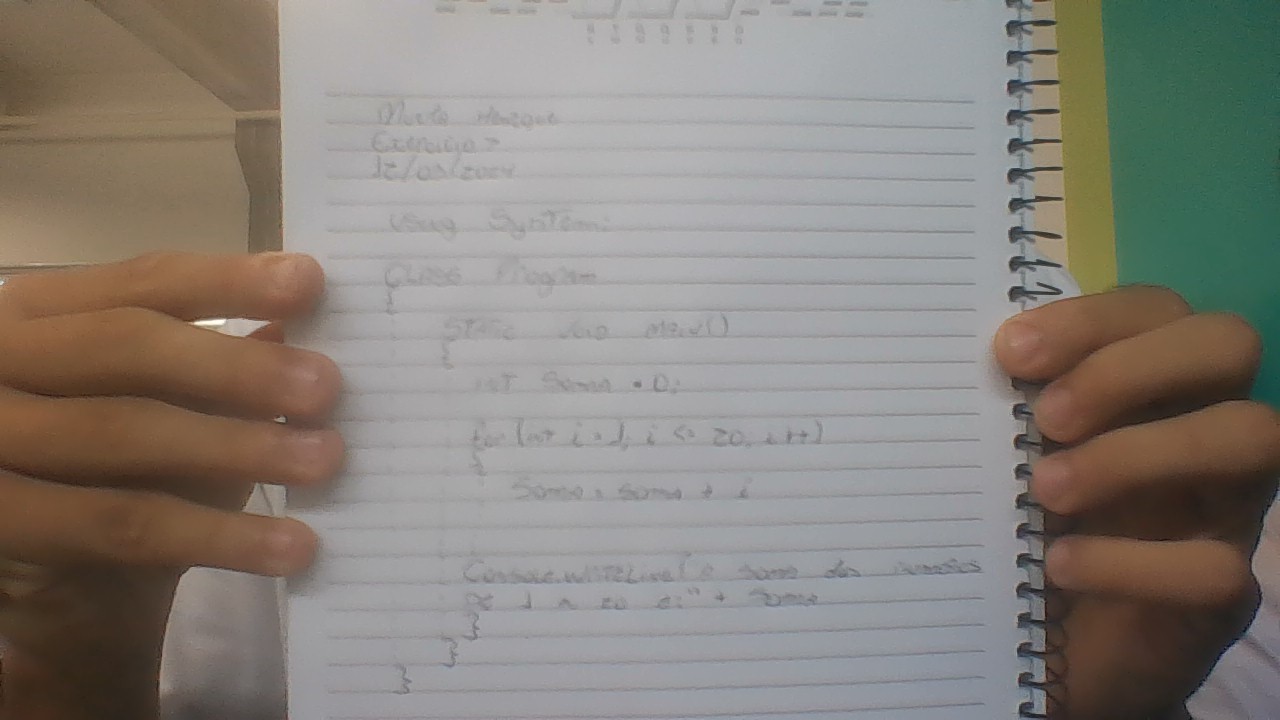 Exercicio 7
12/03/2024
Using System;
Class Program
{
Static void Main()
{
int Soma = 0;
for (int i = 1; i <= 20, i++)
{
Soma = Soma + i
Console.WriteLine("a Soma dos numeros
de 1 a 20 é:" + Soma
}
}
}